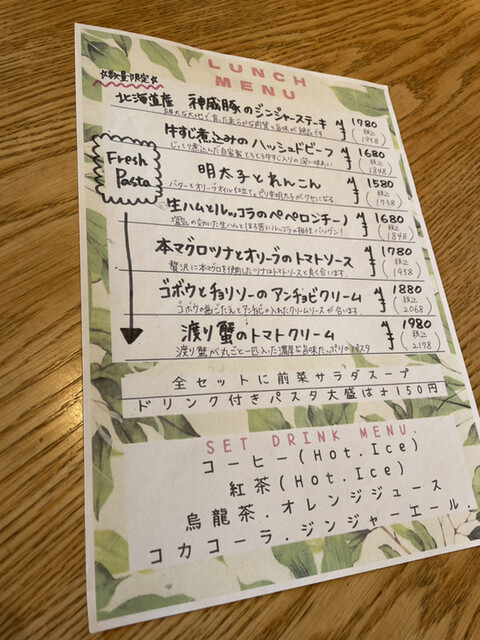 LUNCH
MENU
☆数量限定☆
北海道産 神威豚のジンジャーステーキ ¥1780
(税込1958)
牛すじ煮込みのハッシュドビーフ ¥1680
じっくり煮込んだ自家製とろとろ牛すじ入りの深い味わい (税込1848)
Fresh
Pasta
明太子とれんこん ¥1580
バターとオリーブオイル仕立て。ピリ辛明太子がクセになる (税込1738)
生ハムとルッコラのペペロンチーノ ¥1680
塩気の効いた生ハムとほろ苦いルッコラの相性バツグン! (税込1848)
本マグロツナとオリーブのトマトソース ¥1780
贅沢に本マグロを使用したツナはトマトソースと良く合います。 (税込1958)
ゴボウとチョリソーのアンチョビクリーム ¥1880
ゴボウの歯ごたえとアンチョビの入れたクリームソースが合います (税込2068)
渡り蟹のトマトクリーム ¥1980
渡り蟹が丸ごと一匹入った濃厚な旨味たっぷりのパスタ (税込2178)
全セットに前菜サラダスープ
ドリンク付きパスタ大盛は±150円
SET DRINK MENU.
コーヒー(Hot.Ice)
紅茶(Hot.Ice)
烏龍茶.オレンジジュース
コカコーラ.ジンジャーエール.